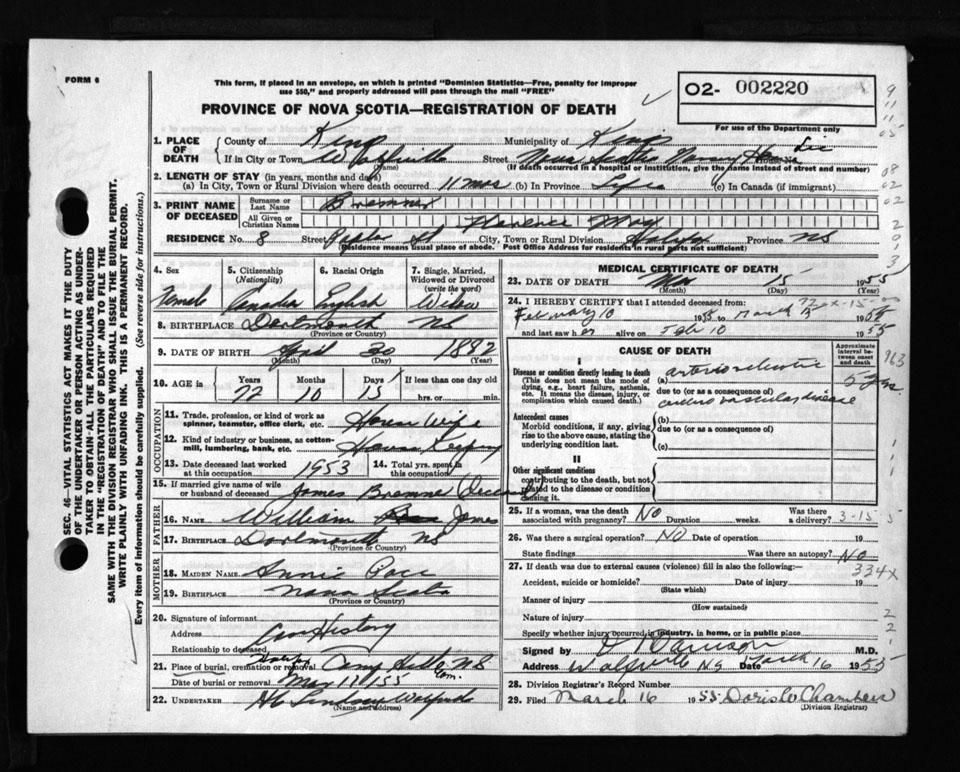 FORM 6
This form, if placed in an envelope, on which is printed "Dominion Statistics—Free, penalty for improper
use $50," and properly addressed will pass through the mail "FREE"
O2- 002220
PROVINCE OF NOVA SCOTIA—REGISTRATION OF DEATH
For use of the Department only
1. PLACE OF DEATH
County of Kings Municipality of Kings
If in City or Town Wolfville Street Nova Scotia Nursing House No.
(Name) (If death occurred in a hospital or institution, give its name instead of street and number)
2. LENGTH OF STAY (in years, months and days)
(a) In City, Town or Rural Division where death occurred 11 mos (b) In Province Life (c) In Canada (if immigrant)
3. PRINT NAME OF DECEASED
Surname or Last Name Bremner
All Given or Christian Names Florence May
RESIDENCE No. 8 Street St City, Town or Rural Division Halifax Province NS
(Residence means usual place of abode. Post Office Address for residents in rural parts not sufficient)
4. Sex Female
5. Citizenship (Nationality) Canadian
6. Racial Origin English
7. Single, Married, Widowed or Divorced (write the word) Widow
8. BIRTHPLACE Dartmouth NS
(Province or Country)
9. DATE OF BIRTH April 30 1882
(Month) (Day) (Year)
10. AGE in Years Months Days If less than one day old
72 10 15 hrs. or min.
OCCUPATION
11. Trade, profession, or kind of work as spinner, teamster, office clerk, etc. House Wife
12. Kind of industry or business, as cotton-mill, lumbering, bank, etc. House Keeping
13. Date deceased last worked at this occupation 1953 14. Total yrs. spent in this occupation
15. If married give name of wife or husband of deceased James Bremner Deceased
FATHER
16. NAME William James
17. BIRTHPLACE Dartmouth NS
(Province or Country)
MOTHER
18. MAIDEN NAME Annie
19. BIRTHPLACE Nova Scotia
(Province or Country)
20. Signature of informant
Address Case History
Relationship to deceased
21. Place of burial, cremation or removal Camp Hill Cem. NS
Date of burial or removal 55
22. UNDERTAKER Lindsay Wolfville
(Name and address)
MEDICAL CERTIFICATE OF DEATH
23. DATE OF DEATH Mar 15 1955
(Month) (Day) (Year)
24. I HEREBY CERTIFY that I attended deceased from:
February 10 1955 to March 15 1955
and last saw her alive on Feb 10 1955
CAUSE OF DEATH
Approximate interval between onset and death
I
Disease or condition directly leading to death
(This does not mean the mode of dying, e.g., heart failure, asthenia, etc. It means the disease, injury, or complication which caused death.)
(a) arteriosclerotic 5 yrs
due to (or as consequence of)
cardio vascular disease
Antecedent causes
Morbid conditions, if any, giving rise to the above cause, stating the underlying condition last.
(b)
due to (or as a consequence of)
(c)
II
Other significant conditions
contributing to the death, but not related to the disease or condition causing it.
25. If a woman, was the death associated with pregnancy? No Duration weeks. Was there a delivery?
26. Was there a surgical operation? NO Date of operation 19
State findings Was there an autopsy? NO
27. If death was due to external causes (violence) fill in also the following:—
334X
Accident, suicide or homicide? Date of injury 19
(State which)
Manner of injury
(How sustained)
Nature of injury
Specify whether injury occurred in industry, in home, or in public place
Signed by M.D.
Address Wolfville N.S. Date March 16 1955
28. Division Registrar's Record Number
29. Filed March 16 1955 Doris W Chambers
(Division Registrar)
SEC. 46 VITAL STATISTICS ACT MAKES IT THE DUTY
OF THE UNDERTAKER OR PERSON ACTING AS UNDER-
TAKER TO OBTAIN ALL THE PARTICULARS REQUIRED
IN THE "REGISTRATION OF DEATH" AND TO FILE THE
SAME WITH THE DIVISION REGISTRAR WHO SHALL ISSUE THE BURIAL PERMIT.
WRITE PLAINLY WITH UNFADING INK. THIS IS A PERMANENT RECORD.
Every item of information should be carefully supplied. (See reverse side for instructions.)